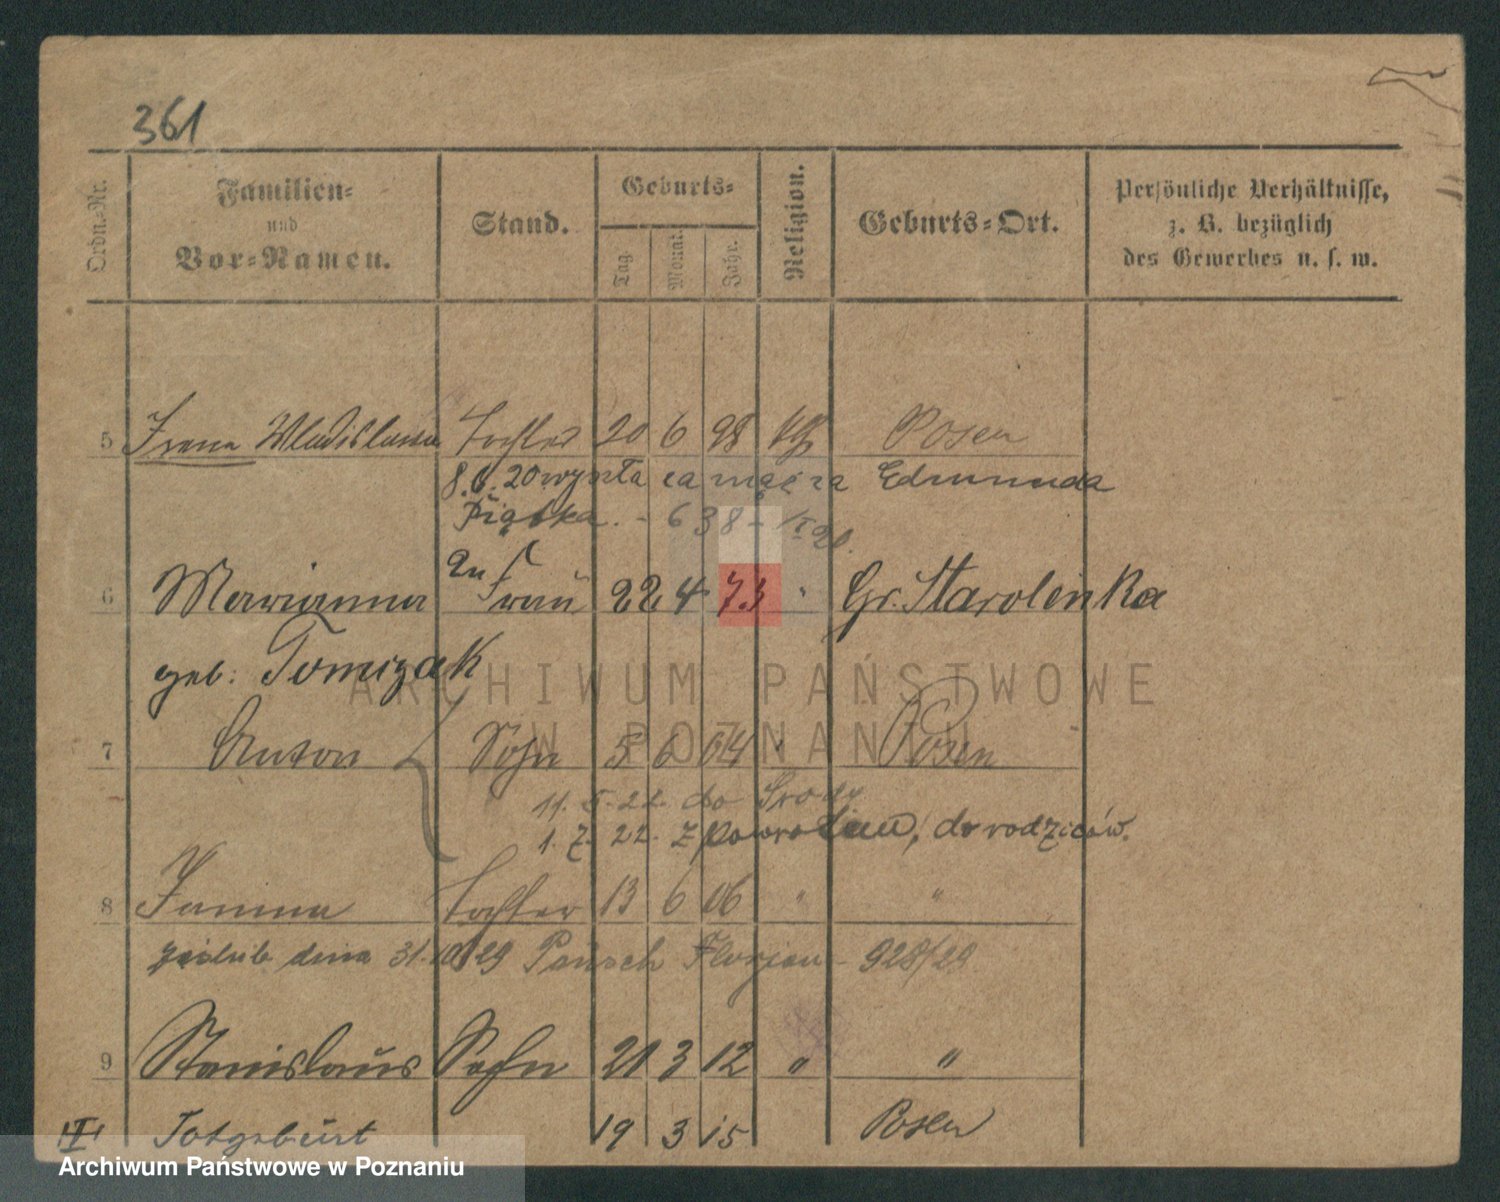 361
Ordn.-Nr.
Familien- und Vor-Namen.
Stand.
Geburts-
Tag.
Monat.
Jahr.
Religion.
Geburts-Ort.
Persönliche Verhältnisse, z. B. bezüglich des Gewerbes u. s. w.
5 Irena Wladislawa Tochter 20 6 98 kth Posen
8.6.20 wyszła za mąż za Edmunda
Piątka. - 638
6 Marianna Frau 22 4 73 " Gr. Starolenka
geb: Tomczak
7 Anton Sohn 5 6 04 " Posen
11. 5. 22. do Środy
1. 7. 22. z powrotem, do rodziców.
8 Janina Tochter 13 6 06 " "
zaślub. dnia 31.10.29 Florjan - 928/29
9 Stanislaus Sohn 21 3 12 " "
Totgeburt 19 3 15 Posen
ARCHIWUM PAŃSTWOWE
W POZNANIU
Archiwum Państwowe w Poznaniu